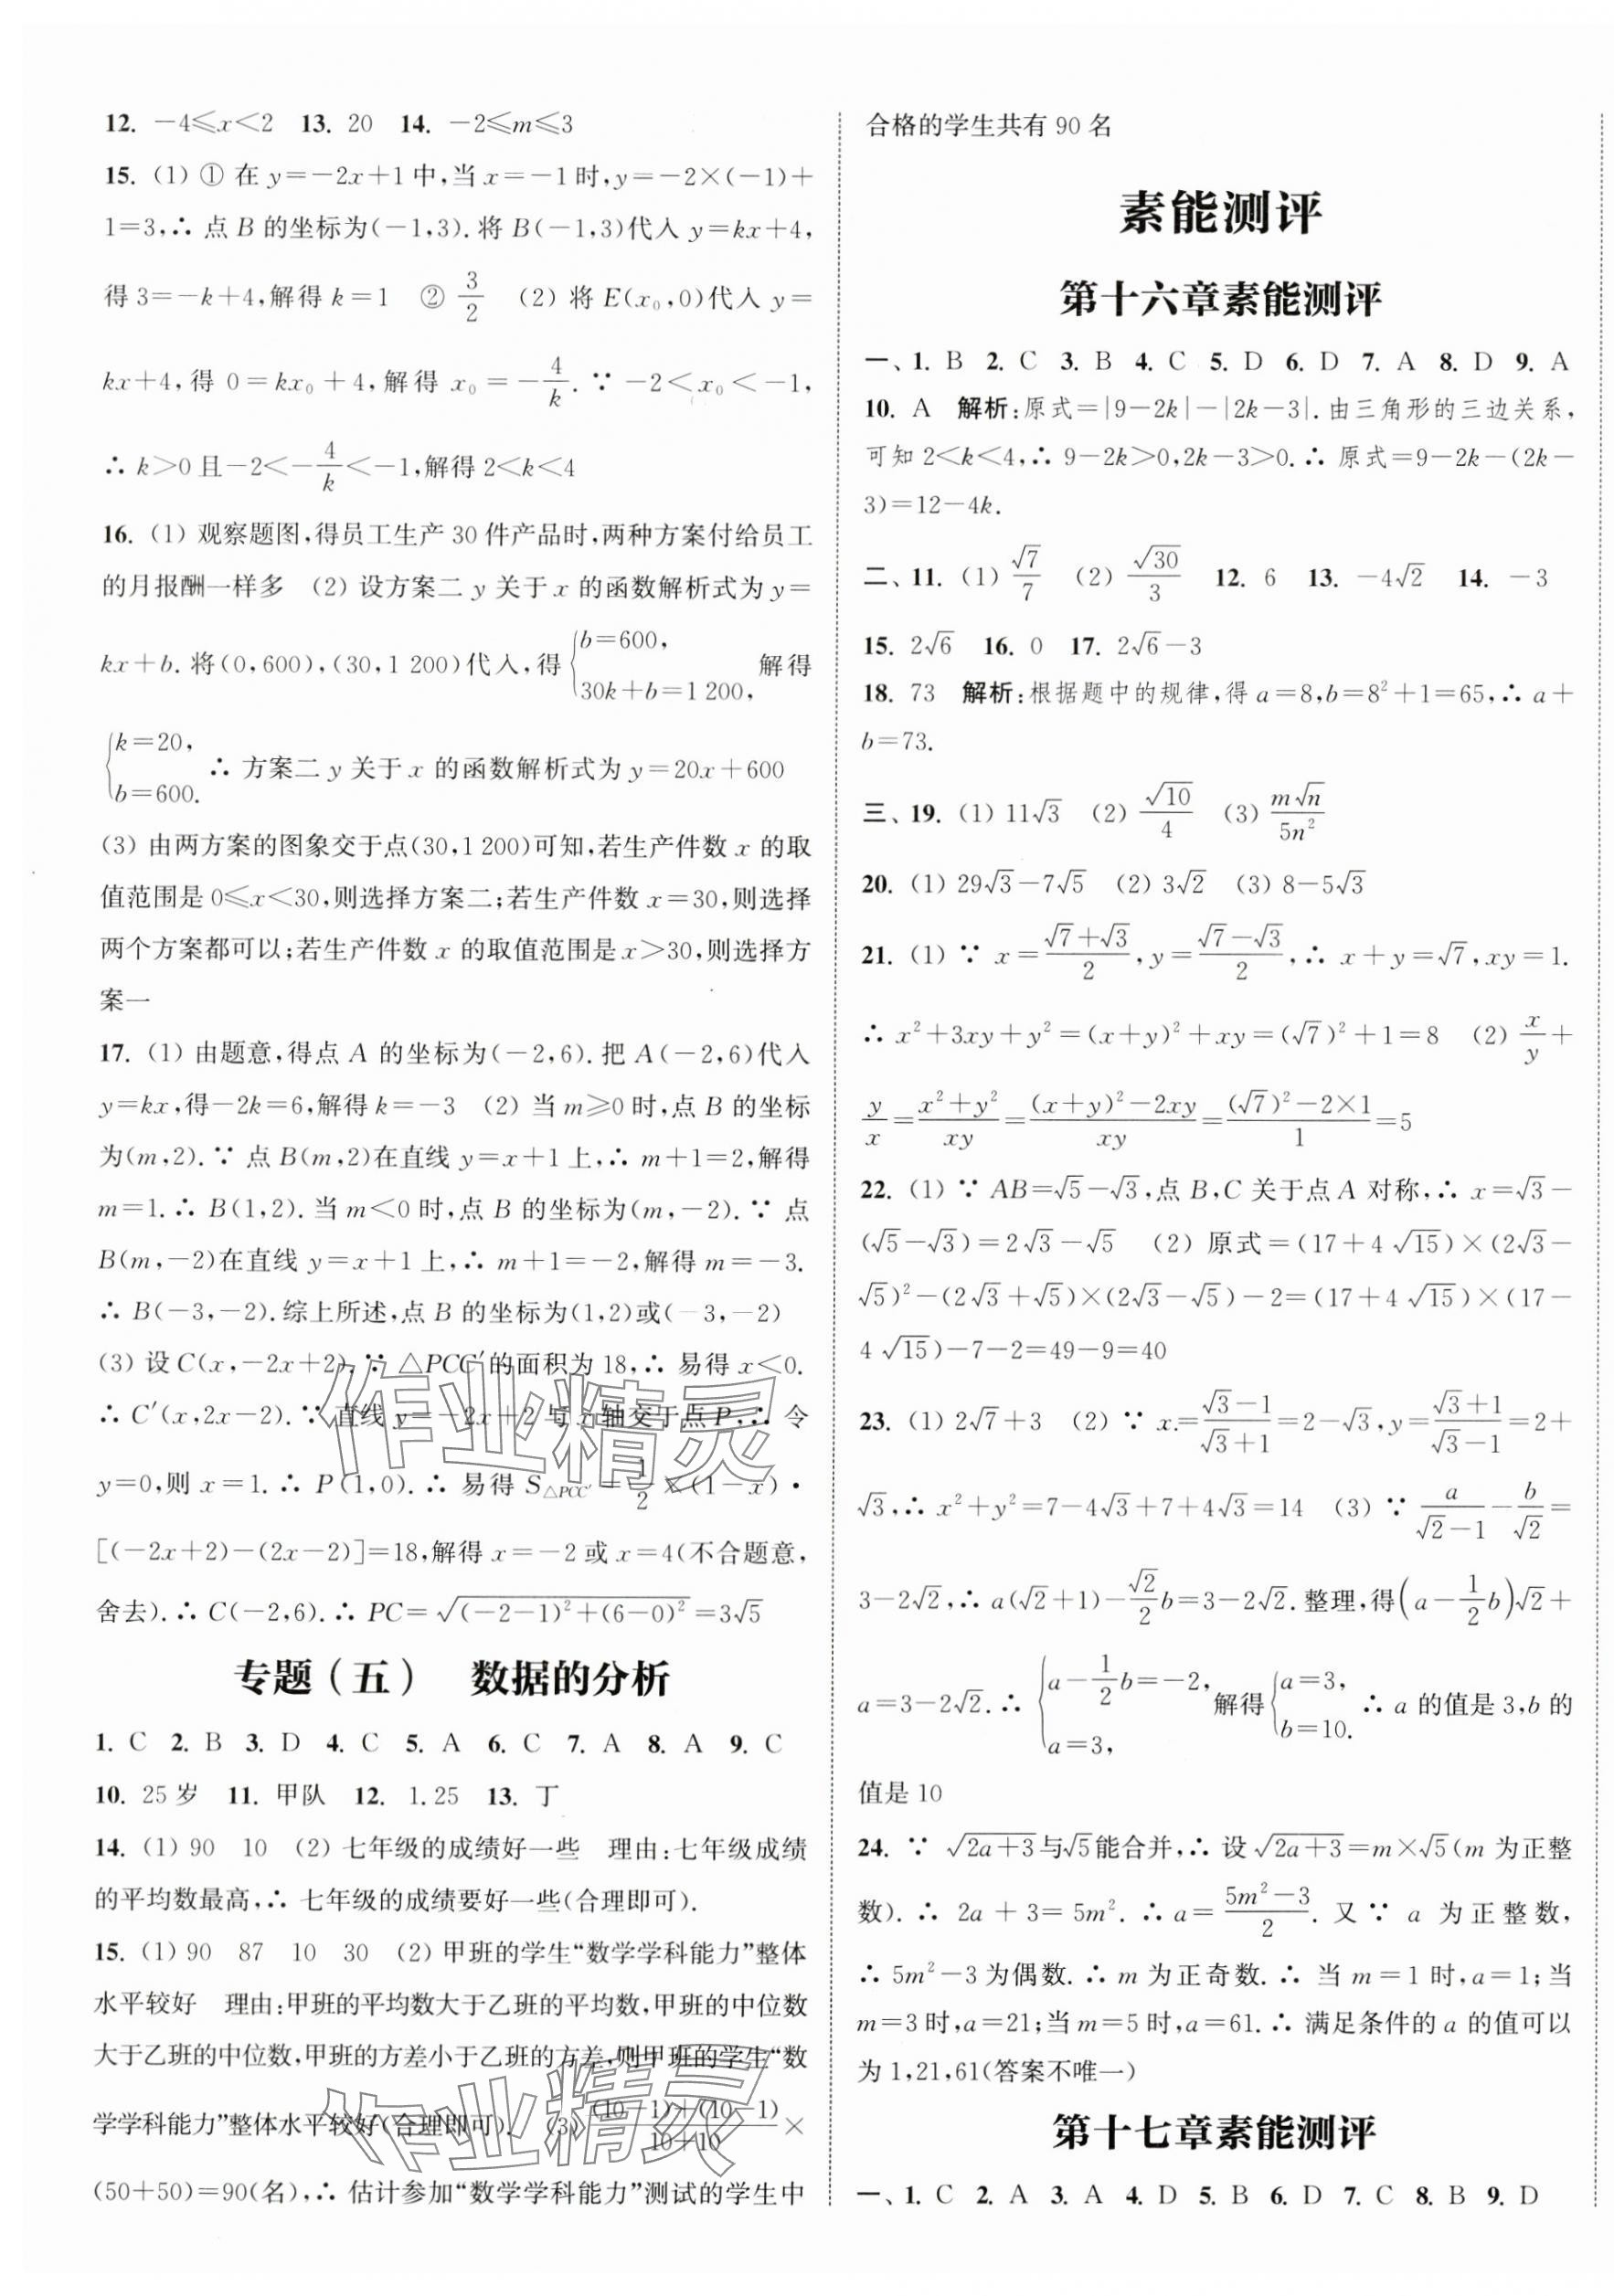 12. −4≤x<2 13. 20 14. −2≤m≤3
15. (1) ① 在 y=−2x+1 中,当 x=−1 时,y=−2×(−1)+
1=3,∴ 点 B 的坐标为(−1,3). 将 B(−1,3)代入 y=kx+4,
得 3=−k+4,解得 k=1 ② 3/2 (2) 将 E(x₀,0)代入 y=
kx+4,得 0=kx₀+4,解得 x₀=−4/k. ∵ −2<x₀<−1,
∴ k>0 且−2<−4/k<−1,解得 2<k<4
16. (1) 观察题图,得员工生产 30 件产品时,两种方案付给员工
的月报酬一样多 (2) 设方案二 y 关于 x 的函数解析式为 y=
kx+b. 将(0,600),(30,1 200)代入,得{b=600, 30k+b=1 200, 解得
{k=20, b=600. ∴ 方案二 y 关于 x 的函数解析式为 y=20x+600
(3) 由两方案的图象交于点(30,1 200)可知,若生产件数 x 的取
值范围是 0≤x<30,则选择方案二;若生产件数 x=30,则选择
两个方案都可以;若生产件数 x 的取值范围是 x>30,则选择方
案一
17. (1) 由题意,得点 A 的坐标为(−2,6). 把 A(−2,6)代入
y=kx,得−2k=6,解得 k=−3 (2) 当 m≥0 时,点 B 的坐标
为(m,2). ∵ 点 B(m,2)在直线 y=x+1 上,∴ m+1=2,解得
m=1. ∴ B(1,2). 当 m<0 时,点 B 的坐标为(m,−2). ∵ 点
B(m,−2)在直线 y=x+1 上,∴ m+1=−2,解得 m=−3.
∴ B(−3,−2). 综上所述,点 B 的坐标为(1,2)或(−3,−2)
(3) 设 C(x,−2x+2). ∵ △PCC′的面积为 18,∴ 易得 x<0.
∴ C′(x,2x−2). ∵ 直线 y=−2x+2 与 x 轴交于点 P,∴ 令
y=0,则 x=1. ∴ P(1,0). ∴ 易得 S△PCC′=1/2×(1−x)·
[(−2x+2)−(2x−2)]=18,解得 x=−2 或 x=4(不合题意,
舍去). ∴ C(−2,6). ∴ PC=√((−2−1)²+(6−0)²)=3√5
专题(五) 数据的分析
1. C 2. B 3. D 4. C 5. A 6. C 7. A 8. A 9. C
10. 25 岁 11. 甲队 12. 1.25 13. 丁
14. (1) 90 10 (2) 七年级的成绩好一些 理由:七年级成绩
的平均数最高,∴ 七年级的成绩要好一些(合理即可).
15. (1) 90 87 10 30 (2) 甲班的学生“数学学科能力”整体
水平较好 理由:甲班的平均数大于乙班的平均数,甲班的中位数
大于乙班的中位数,甲班的方差小于乙班的方差,则甲班的学生“数
学学科能力”整体水平较好(合理即可). (3) ((10−1)+(10−1))/(10+10)×
(50+50)=90(名),∴ 估计参加“数学学科能力”测试的学生中
合格的学生共有 90 名
素能测评
第十六章素能测评
一、1. B 2. C 3. B 4. C 5. D 6. D 7. A 8. D 9. A
10. A 解析:原式=|9−2k|−|2k−3|. 由三角形的三边关系,
可知 2<k<4,∴ 9−2k>0,2k−3>0. ∴ 原式=9−2k−(2k−
3)=12−4k.
二、11. (1) √7/7 (2) √30/3 12. 6 13. −4√2 14. −3
15. 2√6 16. 0 17. 2√6−3
18. 73 解析:根据题中的规律,得 a=8,b=8²+1=65,∴ a+
b=73.
三、19. (1) 11√3 (2) √10/4 (3) m√n/5n²
20. (1) 29√3−7√5 (2) 3√2 (3) 8−5√3
21. (1) ∵ x=(√7+√3)/2,y=(√7−√3)/2,∴ x+y=√7,xy=1.
∴ x²+3xy+y²=(x+y)²+xy=(√7)²+1=8 (2) x/y+
y/x=(x²+y²)/xy=((x+y)²−2xy)/xy=((√7)²−2×1)/1=5
22. (1) ∵ AB=√5−√3,点 B,C 关于点 A 对称,∴ x=√3−
(√5−√3)=2√3−√5 (2) 原式=(17+4√15)×(2√3−
√5)²−(2√3+√5)×(2√3−√5)−2=(17+4√15)×(17−
4√15)−7−2=49−9=40
23. (1) 2√7+3 (2) ∵ x=(√3−1)/(√3+1)=2−√3,y=(√3+1)/(√3−1)=2+
√3,∴ x²+y²=7−4√3+7+4√3=14 (3) ∵ a/(√2−1)−b/√2=
3−2√2,∴ a(√2+1)−(√2/2)b=3−2√2. 整理,得(a−1/2b)√2+
a=3−2√2. ∴ {a−1/2b=−2, a=3, 解得{a=3, b=10. ∴ a 的值是 3,b 的
值是 10
24. ∵ √(2a+3)与√5能合并,∴ 设√(2a+3)=m×√5(m 为正整
数). ∴ 2a+3=5m². ∴ a=(5m²−3)/2. 又 ∵ a 为正整数,
∴ 5m²−3 为偶数. ∴ m 为正奇数. ∴ 当 m=1 时,a=1;当
m=3 时,a=21;当 m=5 时,a=61. ∴ 满足条件的 a 的值可以
为 1,21,61(答案不唯一)
第十七章素能测评
一、1. C 2. A 3. A 4. D 5. B 6. D 7. C 8. B 9. D
作业精灵
作业精灵